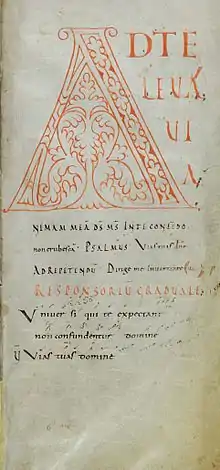 AD TE
LEUA
UI
A
NIMAM MEĀ DS MS INTE CONFIDO
non erubescā. PSALMUS Vias tuas dne
AD REPETENDŪ Dirige me in ueritate
RESPONSORIU GRADUALE
Vniuer si qui te expectant
non confundentur domine
V Vias tuas domine